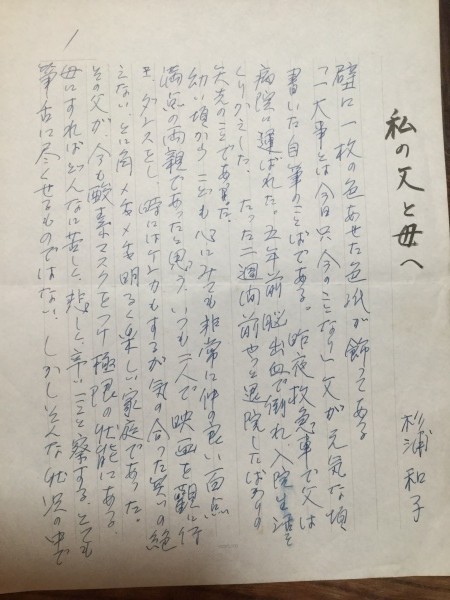 私の父と母へ
杉浦 和子
壁に一枚の色あせた色紙が飾ってある
「一大事とは今日只今のことなり」父が元気な頃
書いた自筆のことばである。昨夜救急車で父は
病院に運ばれた。五年前脳出血で倒れ、入院生活を
くりかえした。たった二週間前やっと退院したばかりの
矢先のことであった。
幼い頃からこども心にみても非常に仲の良い百点
満点の両親であったと思う。いつも二人で映画を観に行
き、ダンスをし、時にはケンカもするが気の合った笑いの絶
えない、とに角メチャメチャ明るく楽しい家庭であった。
その父が、今も酸素マスクをつけ極限の状態にある。
母にすればどんなに苦しく、悲しく、辛いことと察する。とても
筆舌に尽くせるものではない。しかしそんな状況の中で
1